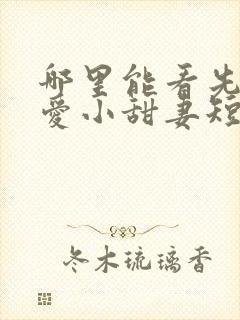 哪里能看先
爱小甜妻短
冬木琉璃香